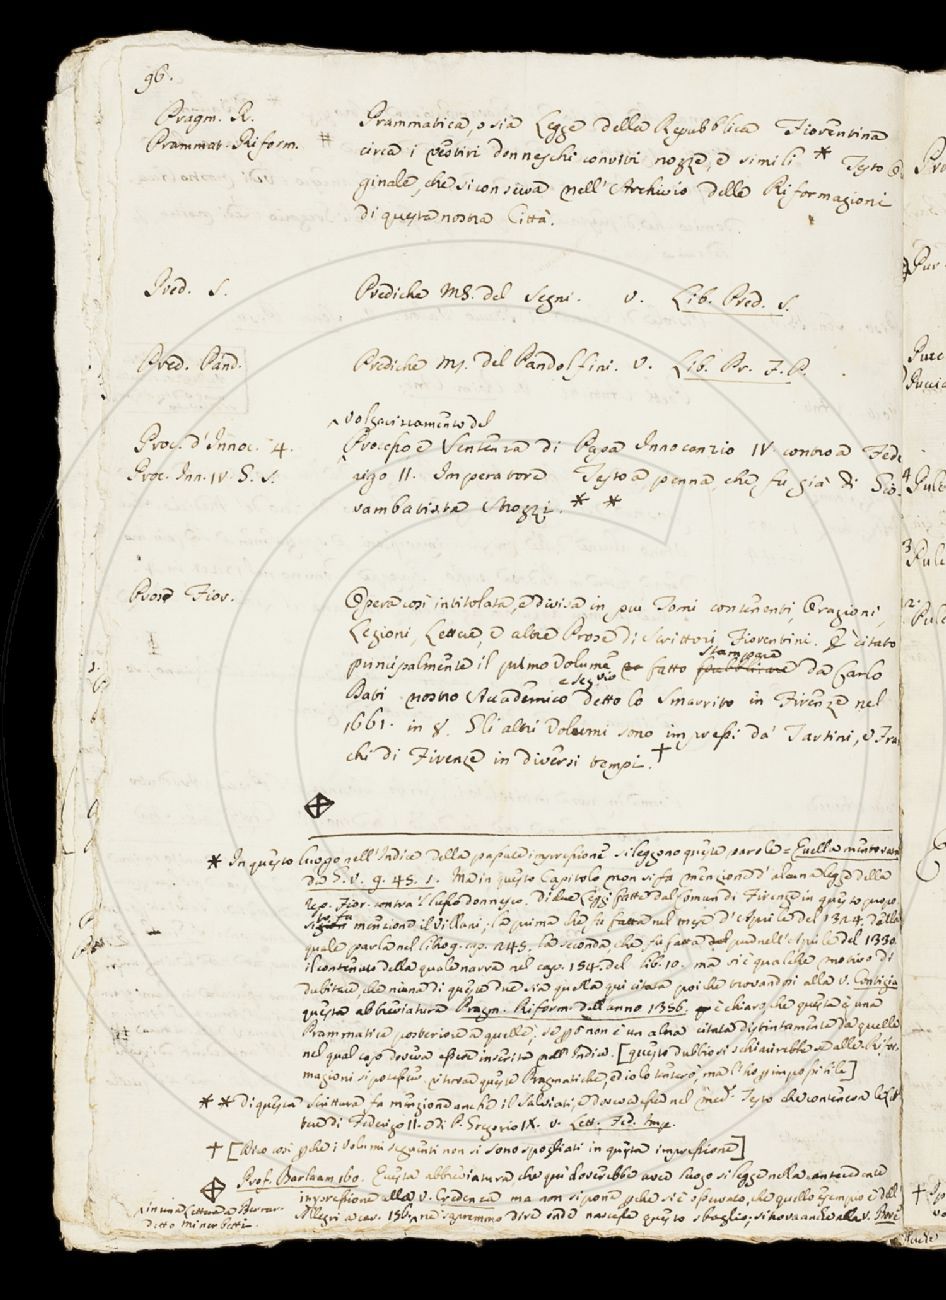 96.
Pragm. R.
Prammat. Riform. #
Prammatica, o sia Legge della Repubblica Fiorentina
circa i vestiri donneschi conviti nozze, e simili * Testo
ginale, che si conserva nell' Archivio delle Riformagioni
di questa nostra Città.
Pred. S.
Prediche MS. del Segni. V. Lib. Pred. S.
Pred. Pand.
Prediche ms. del Pandolfini. V. Lib. Pr. F. P.
volgarizzamento del
Proc. d'Innoc. 4.
Processo e Sentenza di Papa Innocenzio IV. contro a Fede
Proc. Inn. IV. S. S.
rigo II. Imperatore Testo a penna, che fu già di Gio.
vambatista Strozzi. * *
Prose Fior.
Opera così intitolata, e divisa in più Tomi contenenti, Orazioni,
Lezioni, Lettere, e altre Prose di Scrittori Fiorentini. È citato
stampare
principalmente il primo Volume fatto pubblicare da Carlo
e seguìo
Dati nostro Accademico detto lo Smarrito in Firenze nel
1661. in 8. Gli altri Volumi sono impressi da' Tartini, e Fran
chi di Firenze in diversi tempi. †
* In questo luogo nell'Indice della passata impressione si leggono queste parole = Quella mentovata
da G. V. 9. 45. 1. Ma in questo Capitolo non si fa menzione d'alcuna legge della
rep. Fior. contra 'l lusso donnesco. Di due Leggi fatte dal Comun di Firenze in questo propo
sito fa menzione il Villani; la prima che fu fatta nel mese d'Aprile del 1324, della
quale parla nel lib. 9. cap. 245. la seconda che fu fatta pur nell'Aprile del 1330
il contenuto della quale narra nel cap. 154. del lib. 10. ma si è qualche motivo di
dubitare, che niuna di queste due sia quella qui citata poiché trovandosi alla V. Contigia
questa abbreviatura Pragm. Riform. dell'anno 1356. è chiaro, che questa è una
Prammatica posteriore a quelle, se però non è un altra citata distintamente da quella
nel qual caso doveva essere inserita nell'Indice. [questo dubbio si schiarirebbe se alle Rifor
magioni si potessero ritrovar queste Pragmatiche, ed io lo tentero, ma l'ho per impossibile]
* * Di questa scrittura fa menzione anche il Salviati, e dove esser nel med.º Testo che conteneva le let
tere di Federigo II. e di P. Gregorio IX. V. Lett. Fed. Imp.
† [Dico così perche i volumi seguenti non si sono spogliati in questa impressione]
Prof. Barlaam 160. Questa abbreviatura che qui doverebbe aver luogo si legge nella antecedente
impressione alla V. Credenza ma non si pone perche si è osservato, che quello esempio è dell'
Allegri a car. 156. ne sapremmo dire onde nascesse questo sbaglio; si trova anche alla V. Bere
in una Lettera a Bernar
detto Minerbetti.